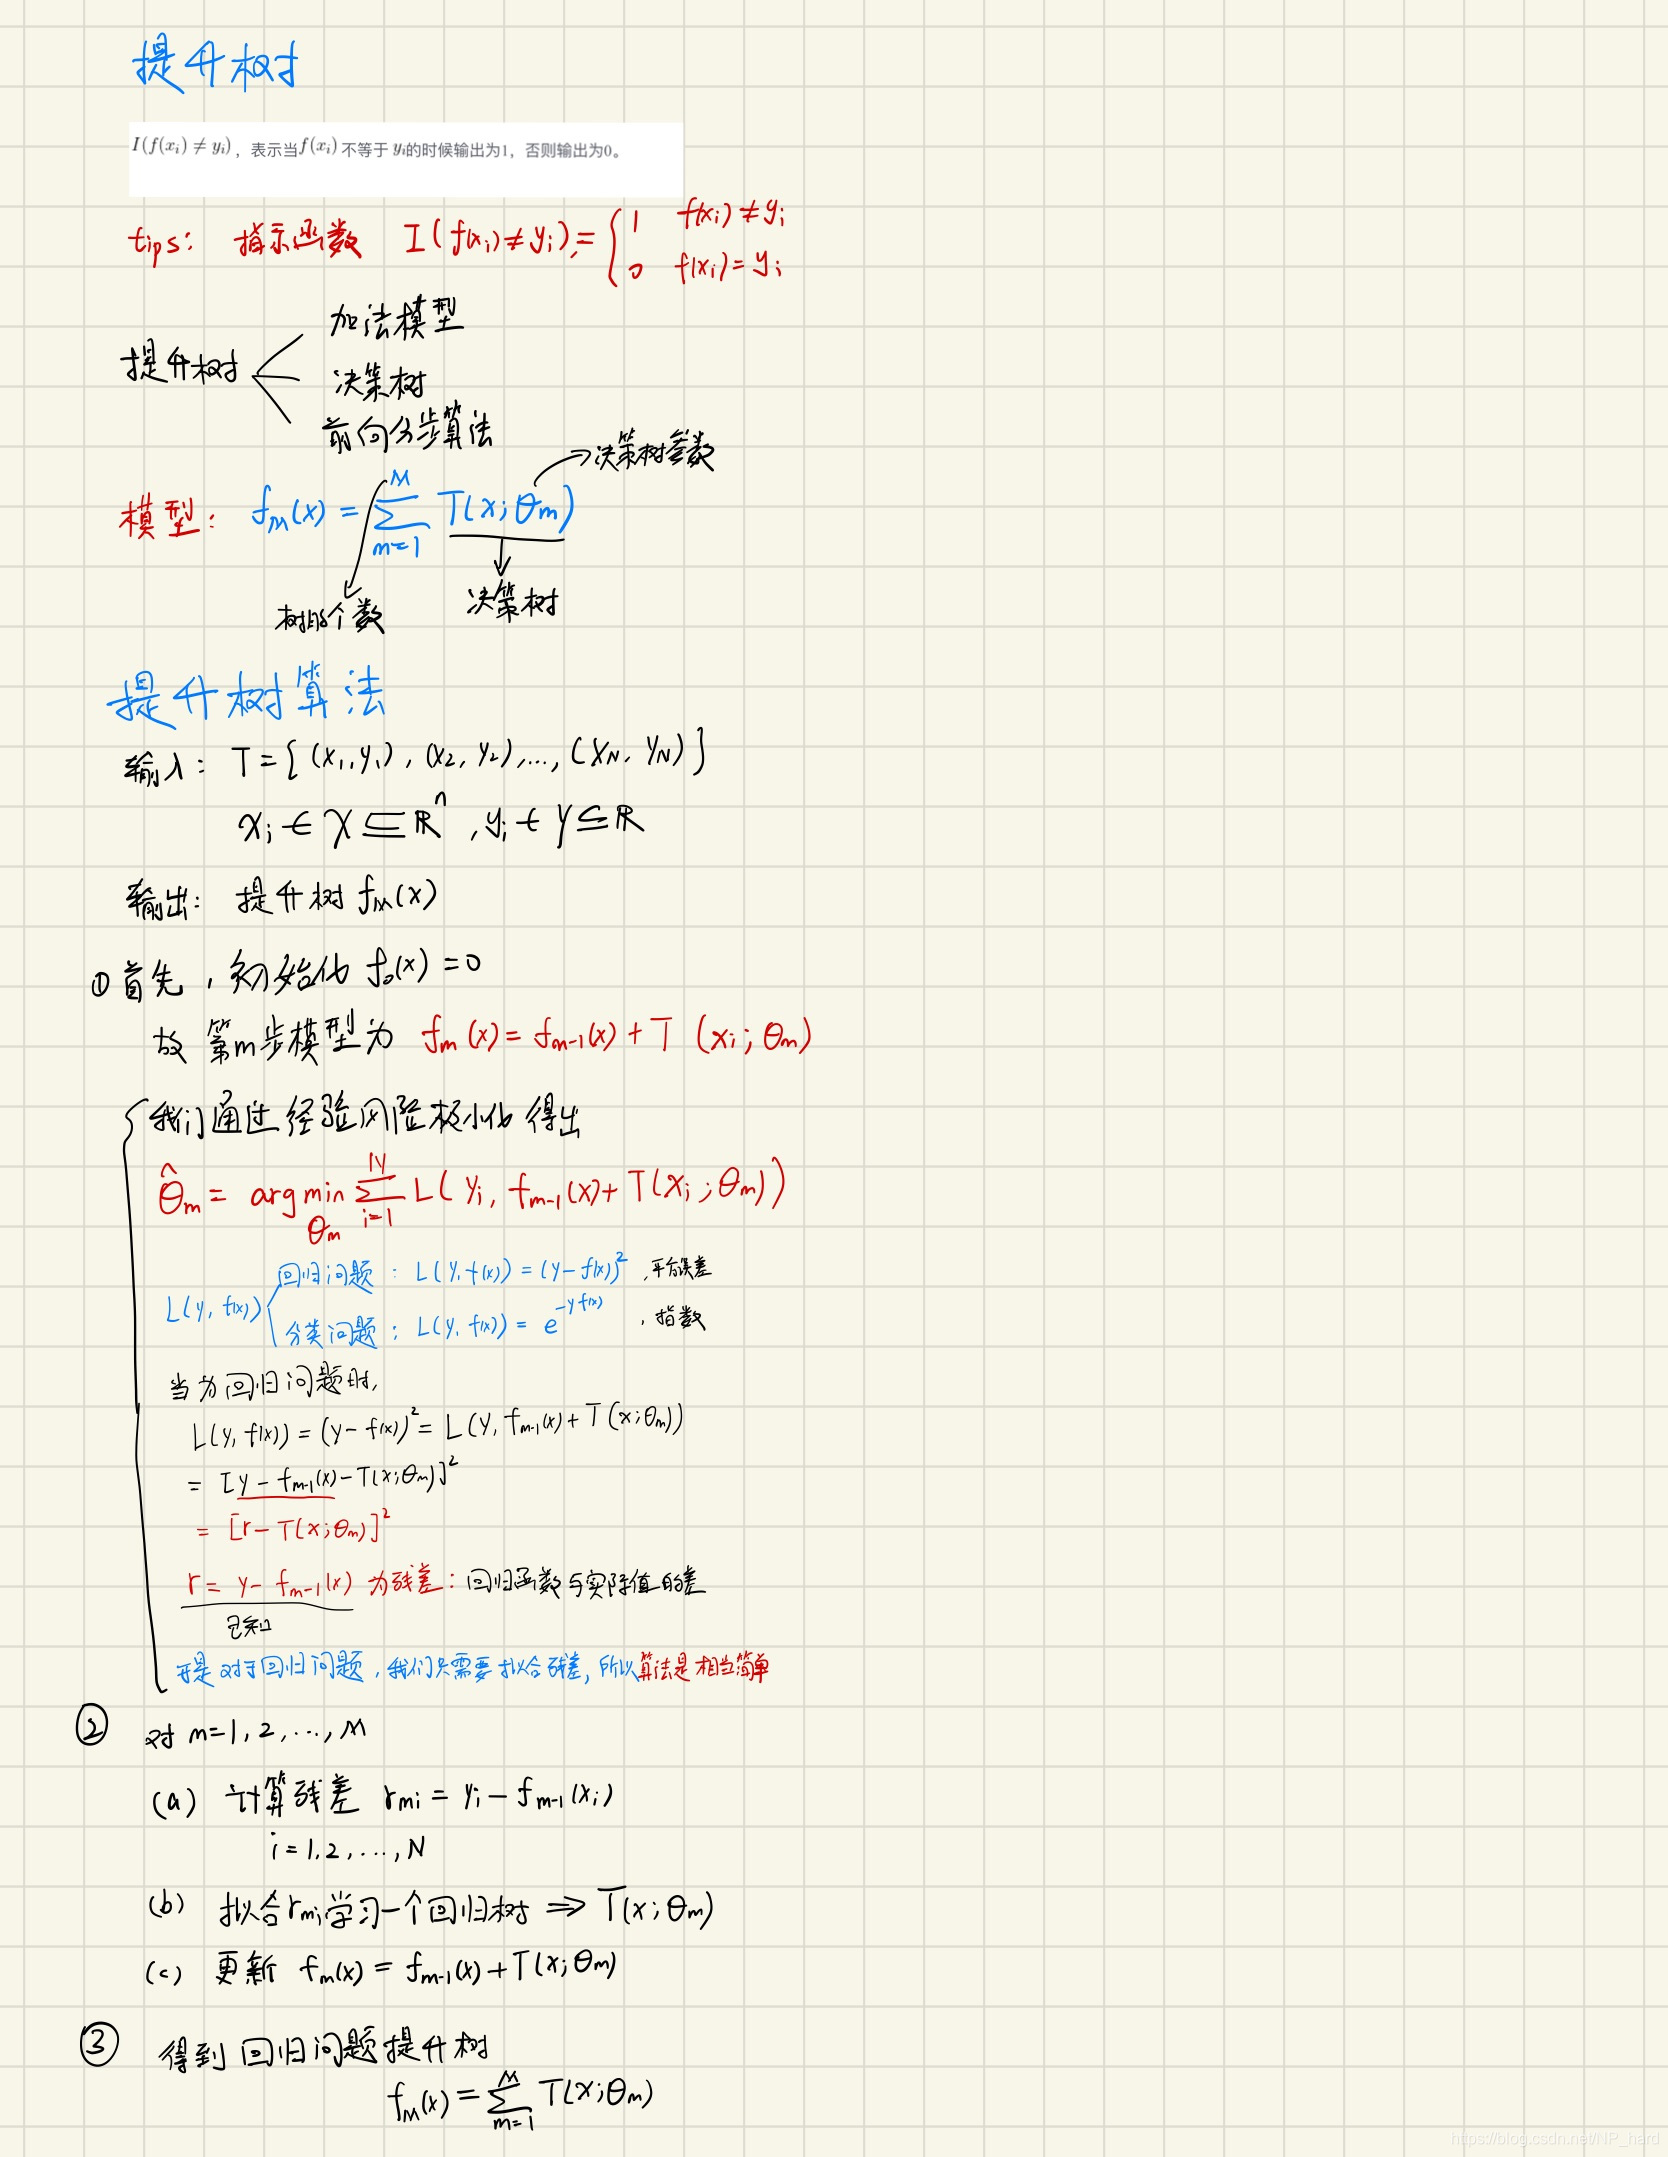 提升树
I(f(xᵢ) ≠ yᵢ)，表示当f(xᵢ) 不等于 yᵢ的时候输出为1，否则输出为0。
tips: 指示函数 I(f(xᵢ)≠yᵢ) = { 1 f(xᵢ)≠yᵢ
0 f(xᵢ)=yᵢ
加法模型
提升树
决策树
前向分步算法
→决策树参数
模型: f_M(x) = ∑_{m=1}^{M} T(x; θₘ)
树的个数 决策树
提升树算法
输入: T={(x₁,y₁), (x₂,y₂), ..., (x_N, y_N)}
xᵢ ∈ χ ⊆ ℝⁿ, yᵢ ∈ Y ⊆ ℝ
输出: 提升树 f_M(x)
① 首先, 初始化 f₀(x)=0
故 第m步模型为 fₘ(x) = fₘ₋₁(x) + T (xᵢ; θₘ)
我们通过经验风险极小化得出
θ̂ₘ = arg min_{θₘ} ∑_{i=1}^{N} L(yᵢ, fₘ₋₁(x)+T(xᵢ; θₘ))
回归问题: L(y, f(x)) = (y-f(x))², 平方误差
L(y, f(x))
分类问题: L(y, f(x)) = e^{-yf(x)}, 指数
当为回归问题时,
L(y, f(x)) = (y-f(x))² = L(y, fₘ₋₁(x)+T(x;θₘ))
= [y-fₘ₋₁(x)-T(x;θₘ)]²
= [r-T(x;θₘ)]²
r = y-fₘ₋₁(x) 为残差: 回归函数与实际值的差
已知
于是对于回归问题, 我们只需要拟合残差, 所以算法是相当简单
② 对 m=1, 2, ..., M
(a) 计算残差 rₘᵢ = yᵢ-fₘ₋₁(xᵢ)
i=1, 2, ..., N
(b) 拟合rₘᵢ学习一个回归树 ⇒ T(x; θₘ)
(c) 更新 fₘ(x) = fₘ₋₁(x)+T(x; θₘ)
③ 得到回归问题提升树
f_M(x) = ∑_{m=1}^{M} T(x;θₘ)
https://blog.csdn.net/NP_hard